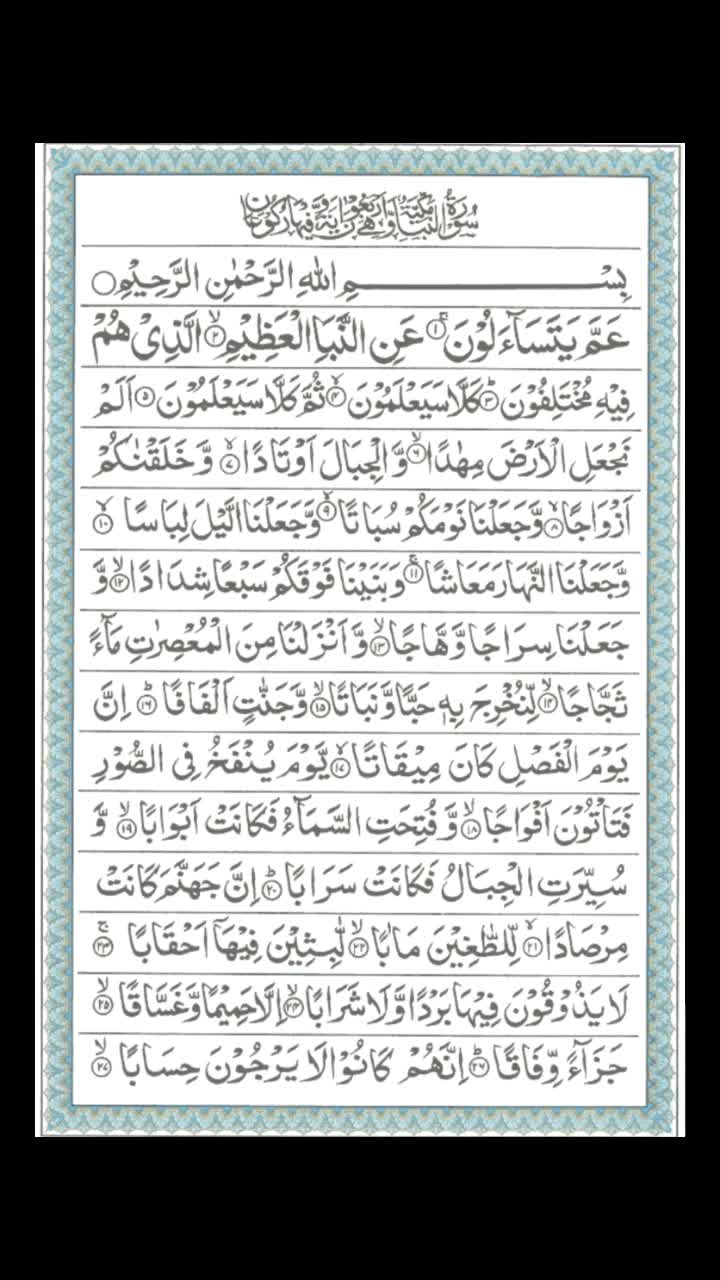 سُوْرَةُ النَّبَاِ مَكِّيَّةٌ وَّهِيَ اَرْبَعُوْنَ اٰيَةً وَّفِيْهَا رُكُوْعَانِ
بِسْمِ اللّٰهِ الرَّحْمٰنِ الرَّحِيْمِ ○
عَمَّ يَتَسَآءَلُوْنَ ۚ﴿۱﴾ عَنِ النَّبَاِ الْعَظِيْمِ ۙ﴿۲﴾ الَّذِيْ هُمْ
فِيْهِ مُخْتَلِفُوْنَ ؕ﴿۳﴾ كَلَّا سَيَعْلَمُوْنَ ۙ﴿۴﴾ ثُمَّ كَلَّا سَيَعْلَمُوْنَ ﴿۵﴾ اَلَمْ
نَجْعَلِ الْاَرْضَ مِهٰدًا ۙ﴿۶﴾ وَّ الْجِبَالَ اَوْتَادًا ۙ﴿۷﴾ وَّ خَلَقْنٰكُمْ
اَزْوَاجًا ۙ﴿۸﴾ وَّجَعَلْنَا نَوْمَكُمْ سُبَاتًا ۙ﴿۹﴾ وَّجَعَلْنَا الَّيْلَ لِبَاسًا ۙ﴿۱۰﴾
وَّجَعَلْنَا النَّهَارَ مَعَاشًا ۪﴿۱۱﴾ وَبَنَيْنَا فَوْقَكُمْ سَبْعًا شِدَادًا ۙ﴿۱۲﴾ وَّ
جَعَلْنَا سِرَاجًا وَّهَّاجًا ۙ﴿۱۳﴾ وَّ اَنْزَلْنَا مِنَ الْمُعْصِرٰتِ مَآءً
ثَجَّاجًا ۙ﴿۱۴﴾ لِّنُخْرِجَ بِهٖ حَبًّا وَّنَبَاتًا ۙ﴿۱۵﴾ وَّجَنّٰتٍ اَلْفَافًا ؕ﴿۱۶﴾ اِنَّ
يَوْمَ الْفَصْلِ كَانَ مِيْقَاتًا ۙ﴿۱۷﴾ يَّوْمَ يُنْفَخُ فِي الصُّوْرِ
فَتَاْتُوْنَ اَفْوَاجًا ۙ﴿۱۸﴾ وَّ فُتِحَتِ السَّمَآءُ فَكَانَتْ اَبْوَابًا ۙ﴿۱۹﴾ وَّ
سُيِّرَتِ الْجِبَالُ فَكَانَتْ سَرَابًا ؕ﴿۲۰﴾ اِنَّ جَهَنَّمَ كَانَتْ
مِرْصَادًا ۙ﴿۲۱﴾ لِّلطّٰغِيْنَ مَاٰبًا ۙ﴿۲۲﴾ لّٰبِثِيْنَ فِيْهَآ اَحْقَابًا ۚ﴿۲۳﴾
لَا يَذُوْقُوْنَ فِيْهَا بَرْدًا وَّلَا شَرَابًا ۙ﴿۲۴﴾ اِلَّا حَمِيْمًا وَّغَسَّاقًا ۙ﴿۲۵﴾
جَزَآءً وِّفَاقًا ؕ﴿۲۶﴾ اِنَّهُمْ كَانُوْا لَا يَرْجُوْنَ حِسَابًا ۙ﴿۲۷﴾